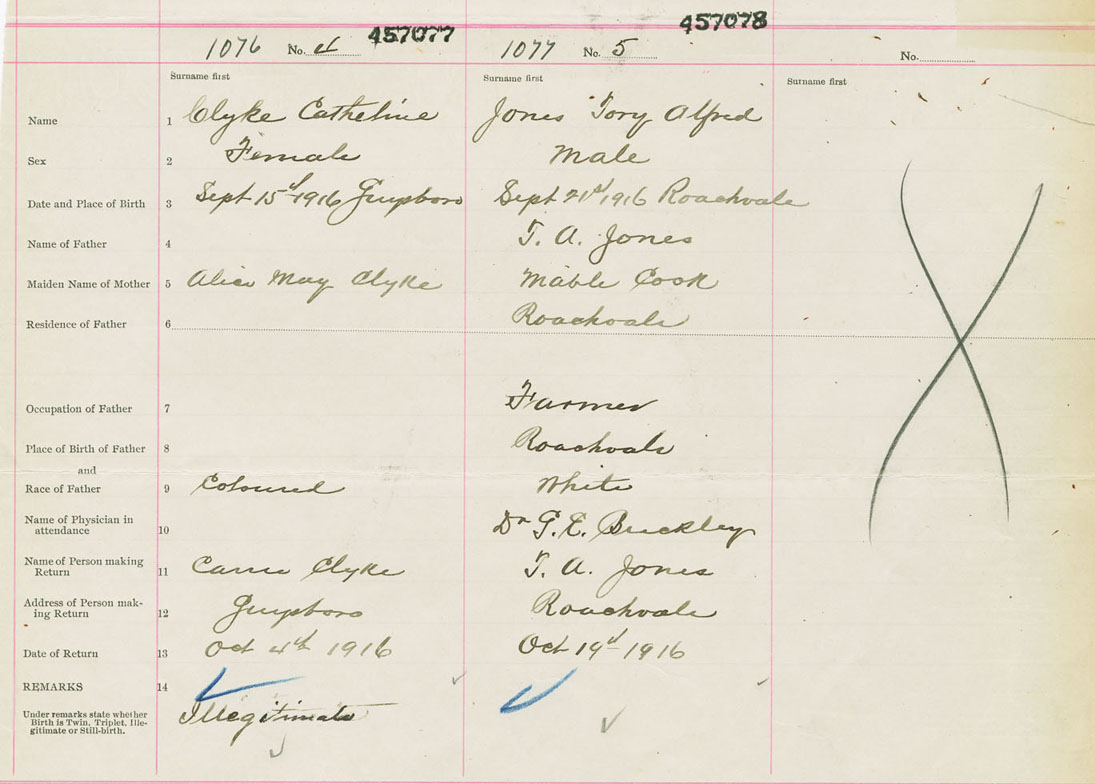 1076 No. 4 457077 1077 No. 5 457078 No.
Surname first Surname first Surname first
Name 1 Clyke Catheline Jones Tory Alfred
Sex 2 Female Male
Date and Place of Birth 3 Sept 15th 1916 Guysboro Sept 21st 1916 Roachvale
Name of Father 4 T. A. Jones
Maiden Name of Mother 5 Alice May Clyke Mable Cook
Residence of Father 6 Roachvale
Occupation of Father 7 Farmer
Place of Birth of Father 8 Roachvale
and
Race of Father 9 Coloured White
Name of Physician in
attendance 10 Dr G. E. Buckley
Name of Person making
Return 11 Carrie Clyke T. A. Jones
Address of Person mak-
ing Return 12 Guysboro Roachvale
Date of Return 13 Oct 4th 1916 Oct 19th 1916
REMARKS 14
Under remarks state whether Illegitimate
Birth is Twin, Triplet, Ille-
gitimate or Still-birth.